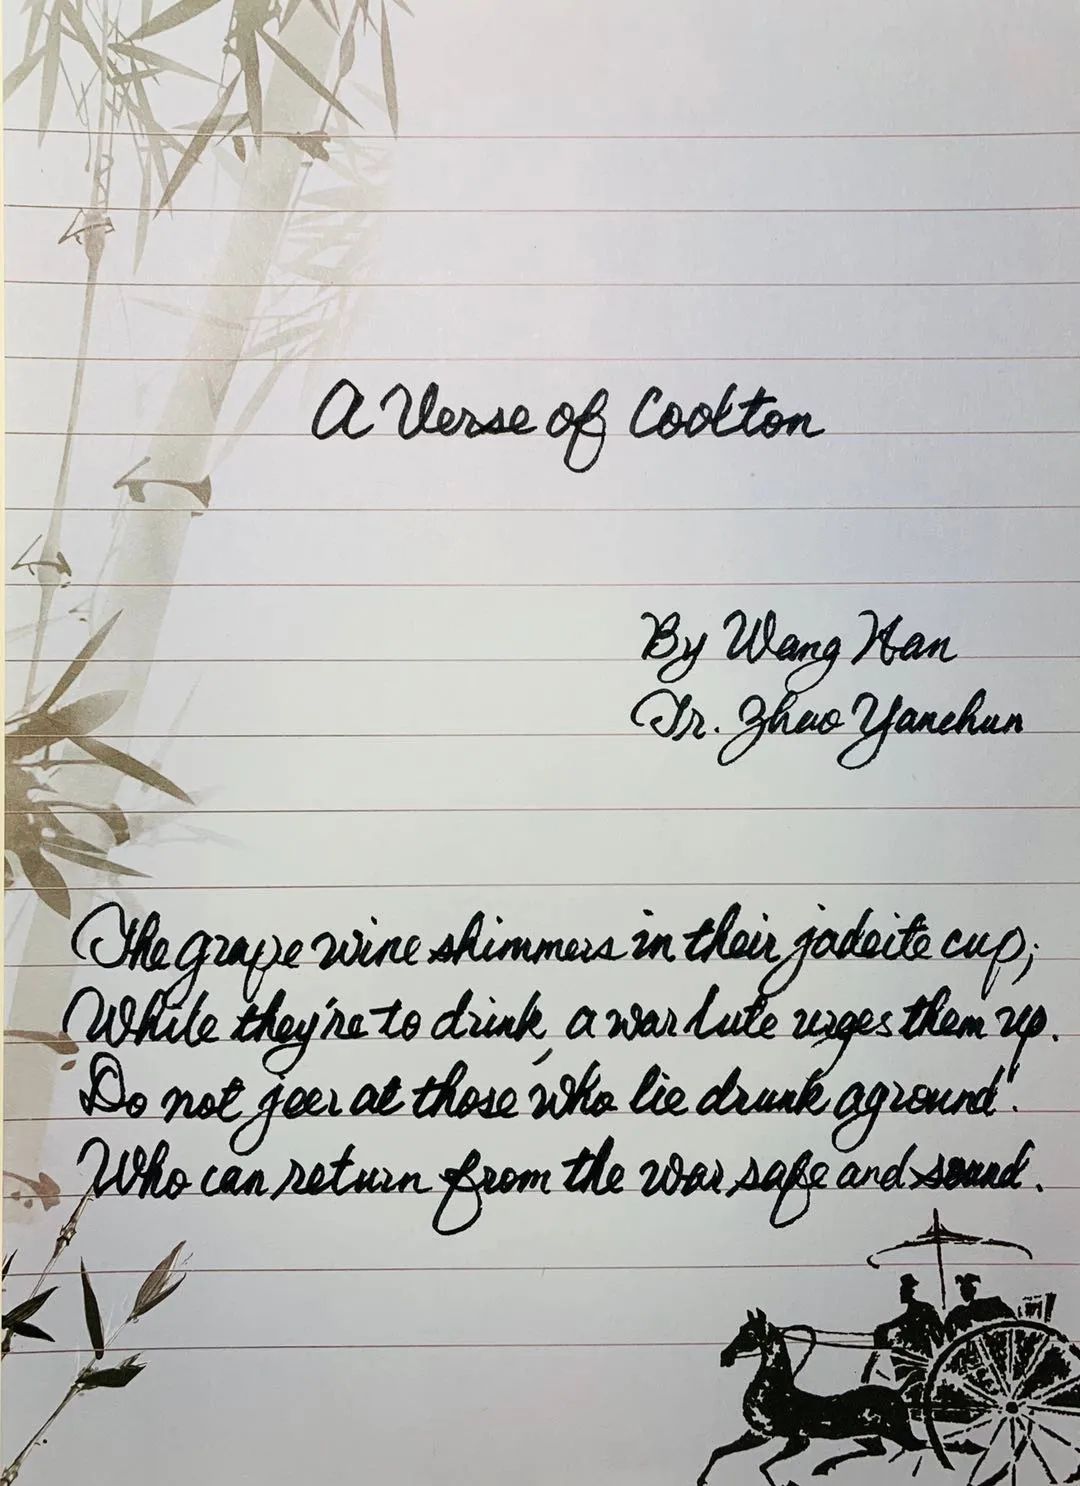 A Verse of Cookton
By Wang Han
Tr. Zhao Yanchun
The grape wine shimmers in their jadeite cup;
While they're to drink, a war lute urges them up.
Do not jeer at those who lie drunk aground.
Who can return from the war safe and sound.